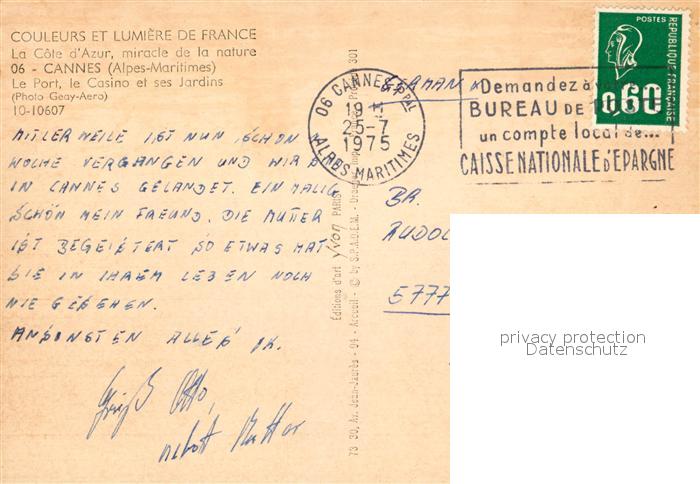 COULEURS ET LUMIÈRE DE FRANCE
La Côte d'Azur, miracle de la nature
06 - CANNES (Alpes-Maritimes)
Le Port, le Casino et ses Jardins
(Photo Geay-Aero)
10-10607
MITLERWEILE IST NUN SCHON
WOCHE VERGANGEN UND WIR
IN CANNES GELANDET. EINMALIG
SCHÖN MEIN FREUND. DIE MUTTER
IST BEGEISTERT SO ETWAS HAT
SIE IN IHREM LEBEN NOCH
NIE GESEHEN.
ANSONSTEN ALLES OK.
Gruß Otto,
nebst Mutter
Editions d'art Yvon PARIS
73 30, Av. Jean-Jaurès - 94 - Arcueil - © by S.P.A.D.E.M. - 301
06 CANNES Ppal
19
25-7
1975
ALPES MARITIMES
GERMANY
Demandez à
BUREAU DE
un compte local de...
CAISSE NATIONALE D'EPARGNE
POSTES
REPUBLIQUE FRANÇAISE
0,60
BR.
RUDOL
5777
privacy protection
Datenschutz